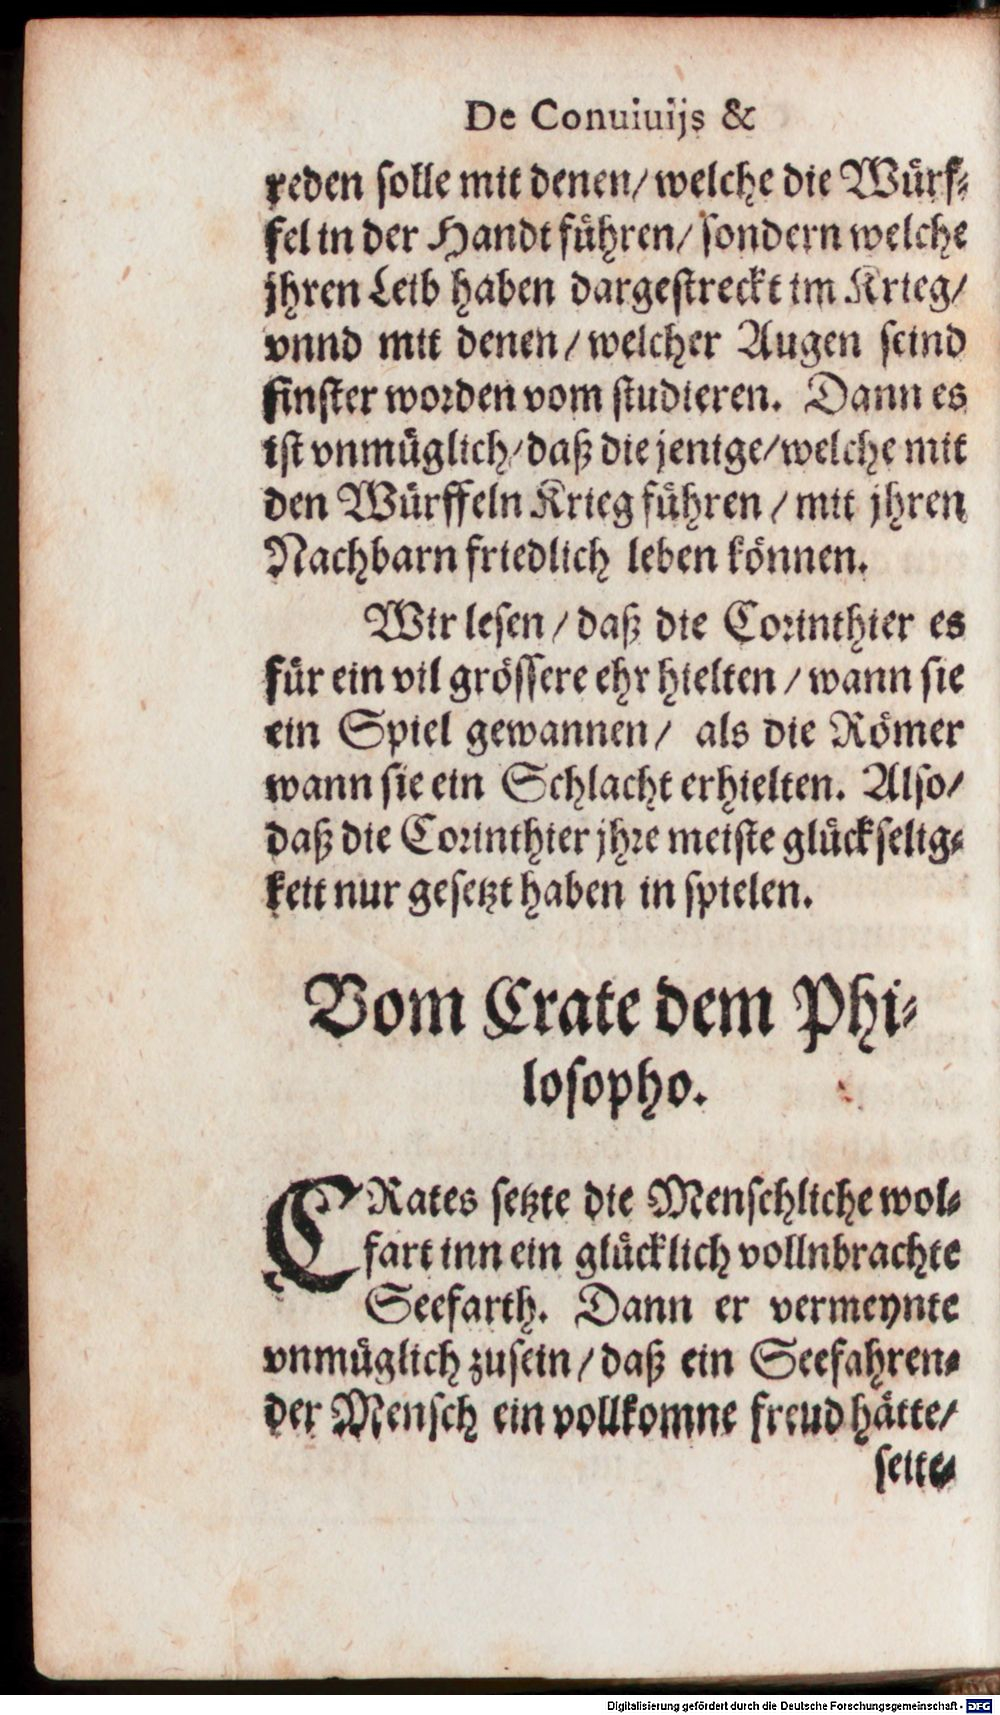 De Conuiuijs &
reden solle mit denen/ welche die Würf⸗
fel in der Handt führen/ sondern welche
jhren Leib haben dargestreckt im Krieg/
vnnd mit denen/ welcher Augen seind
finster worden vom studieren. Dann es
ist vnmüglich/ daß die jenige/ welche mit
den Würffeln Krieg führen/ mit jhren
Nachbarn friedlich leben können.
Wir lesen/ daß die Corinthier es
für ein vil grössere ehr hielten/ wann sie
ein Spiel gewannen/ als die Römer
wann sie ein Schlacht erhielten. Also/
daß die Corinthier jhre meiste glückselig⸗
keit nur gesetzt haben in spielen.
Vom Crate dem Phi⸗
losopho.
CRates setzte die Menschliche wol⸗
fart inn ein glücklich vollnbrachte
Seefarth. Dann er vermeynte
vnmüglich zusein/ daß ein Seefahren⸗
der Mensch ein vollkomne freud hätte/
seite⸗
Digitalisierung gefördert durch die Deutsche Forschungsgemeinschaft - DFG